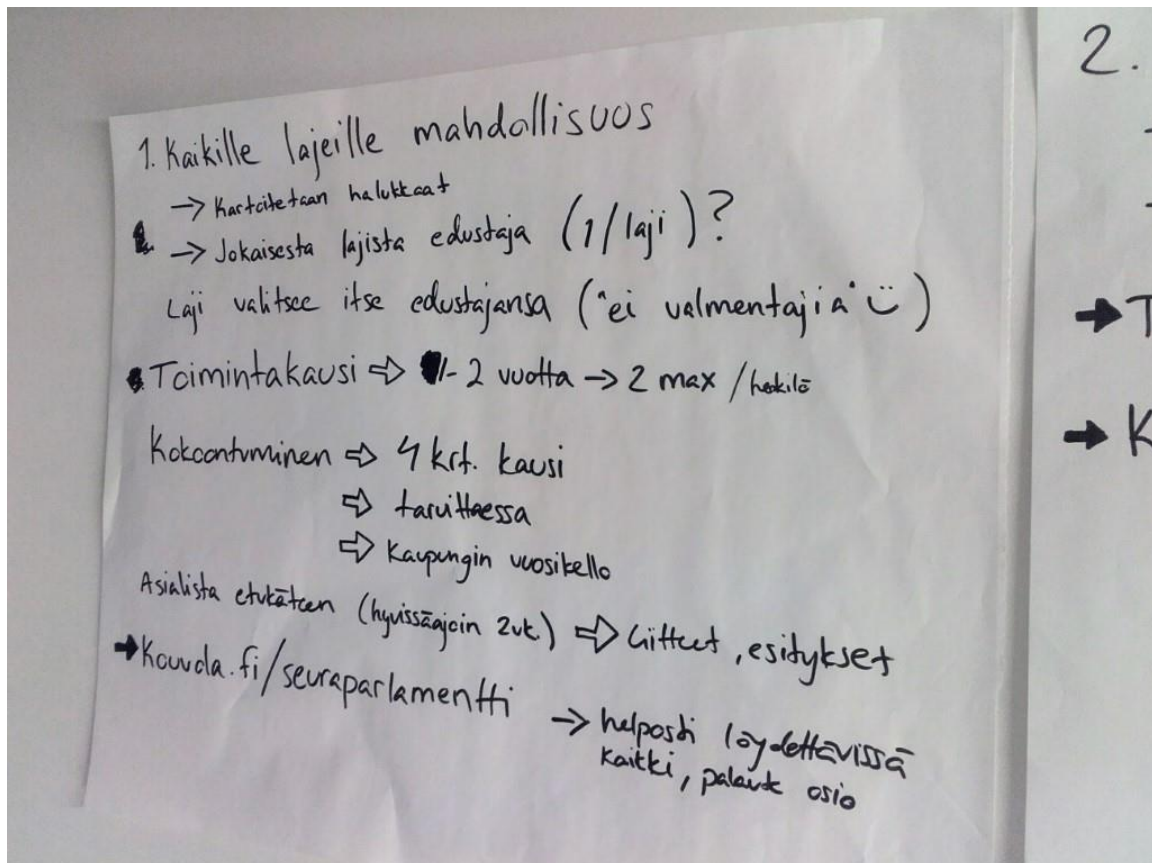 1. Kaikille lajeille mahdollisuus
→ Kartoitetaan halukkaat
→ Jokaisesta lajista edustaja (1/laji)?
Laji valitsee itse edustajansa ("ei valmentajia" ü)
Toimintakausi ⇨ 1-2 vuotta → 2 max /henkilö
Kokoontuminen ⇨ 4 krt. kausi
⇨ tarvittaessa
⇨ Kaupungin vuosikello
Asialista etukäteen (hyvissäajoin 2vk.) ⇨ Liitteet, esitykset
→ Kouvola.fi/seuraparlamentti
→ helposti löydettävissä
kaikki, palaute osio
2.
→ T
→ K